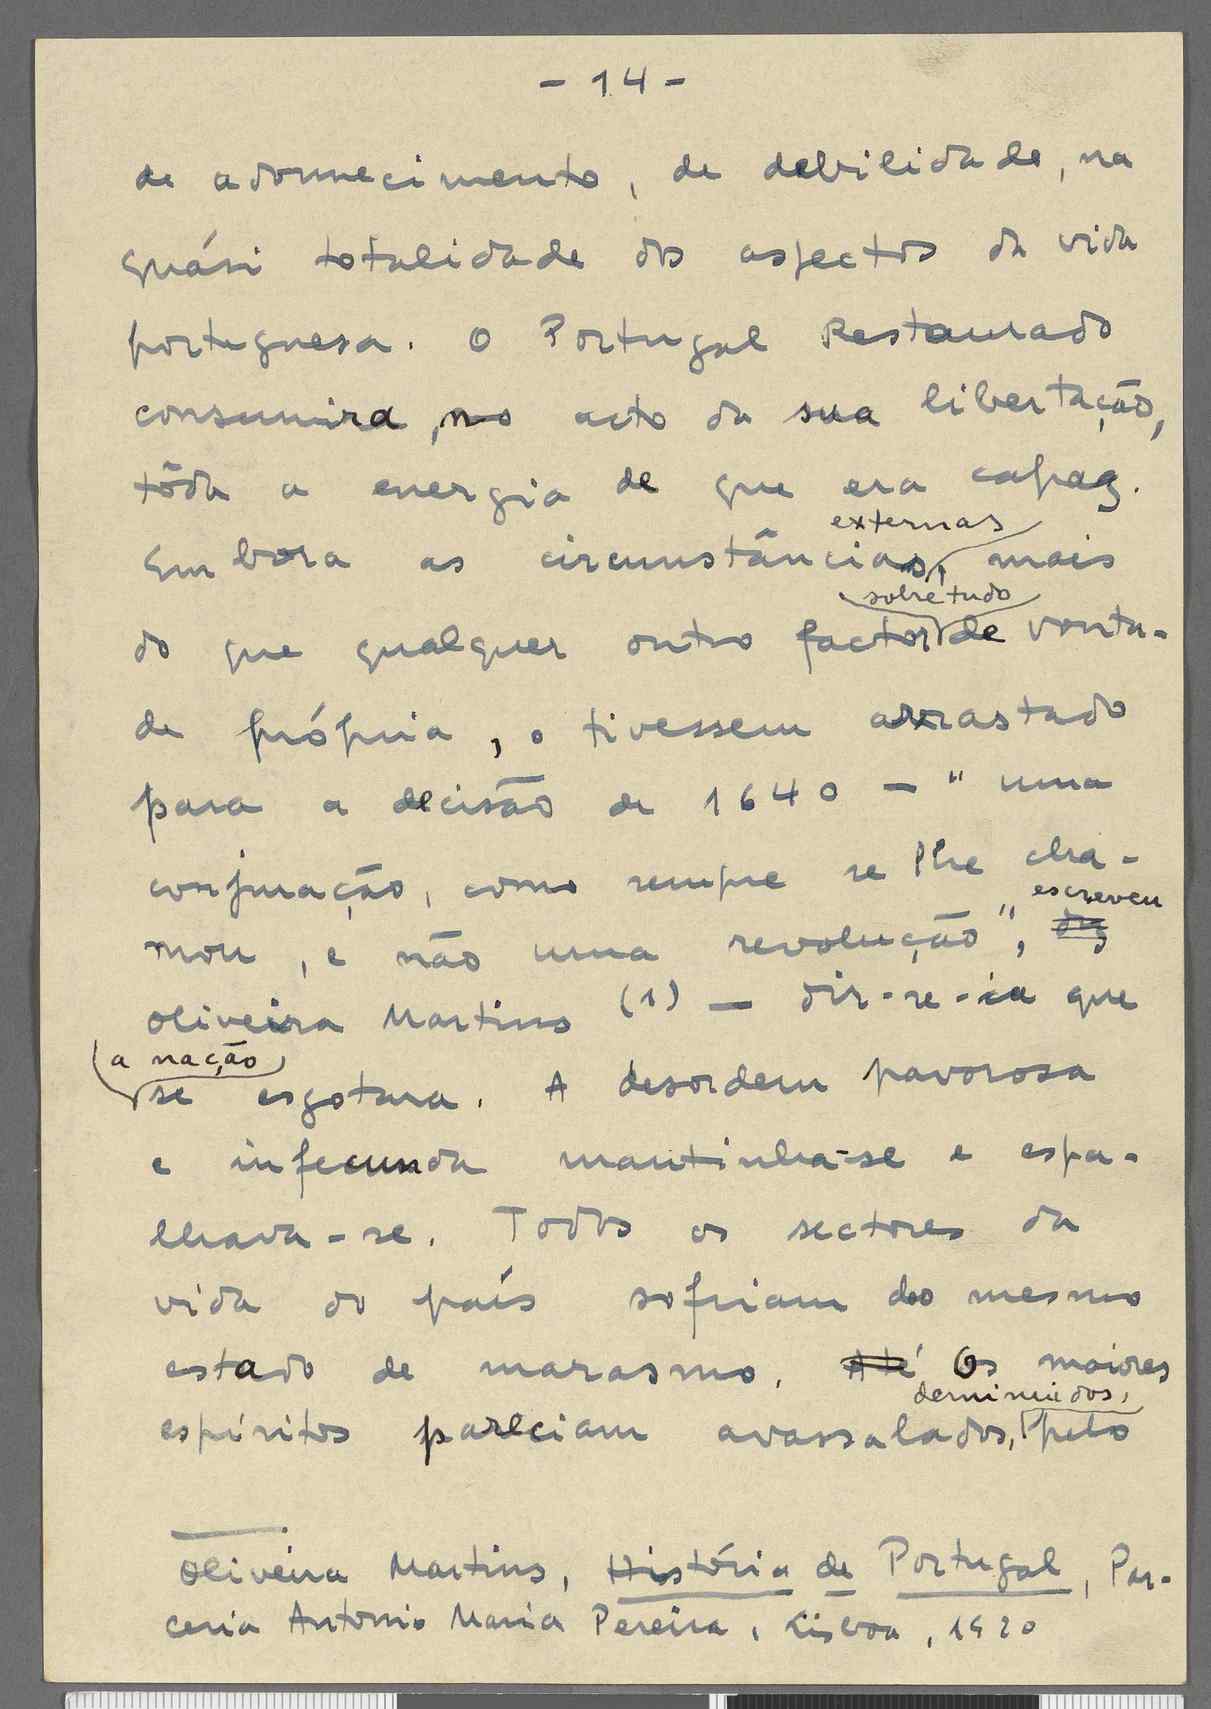 - 14 -
de adormecimento, de debilidade, na
quási totalidade dos aspectos da vida
portuguesa. O Portugal Restaurado
consumira, no acto da sua libertação,
tôda a energia de que era capaz.
externas
Embora as circunstâncias, mais
sobretudo
do que qualquer outro factor de vonta-
de própria, o tivessem arrastado
para a decisão de 1640 - "uma
conjuração, como sempre se lhe cha-
escreveu
mou, e não uma revolução", diz
Oliveira Martins (1) - dir-se-ia que
a nação
se esgotara. A desordem pavorosa
e infecunda mantinha-se e espa-
lhava-se. Todos os sectores da
vida do país sofriam do mesmo
estado de marasmo. Até Os maiores
deminuidos,
espíritos pareciam avassalados, pelo
Oliveira Martins, História de Portugal, Par-
ceria Antonio Maria Pereira, Lisboa, 1920